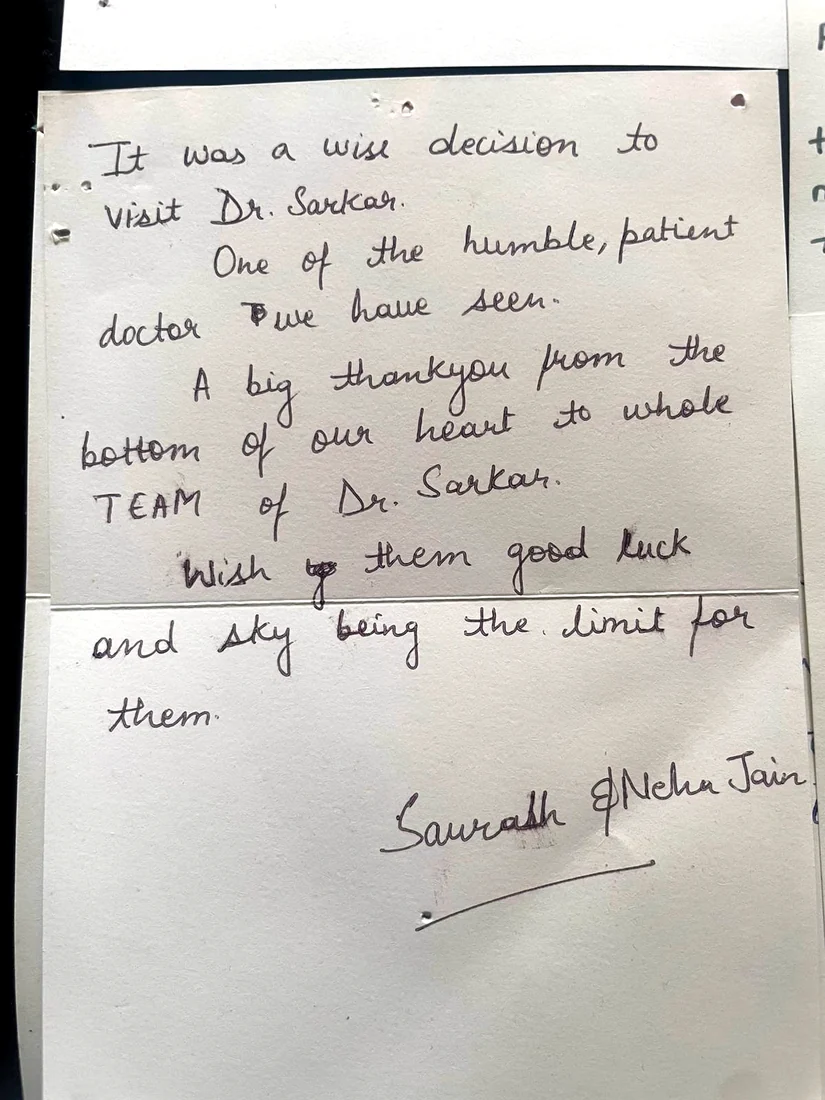 It was a wise decision to
visit Dr. Sarkar.
One of the humble, patient
doctor we have seen.
A big thankyou from the
bottom of our heart to whole
TEAM of Dr. Sarkar.
Wish them good luck
and sky being the limit for
them.
Saurabh & Neha Jain